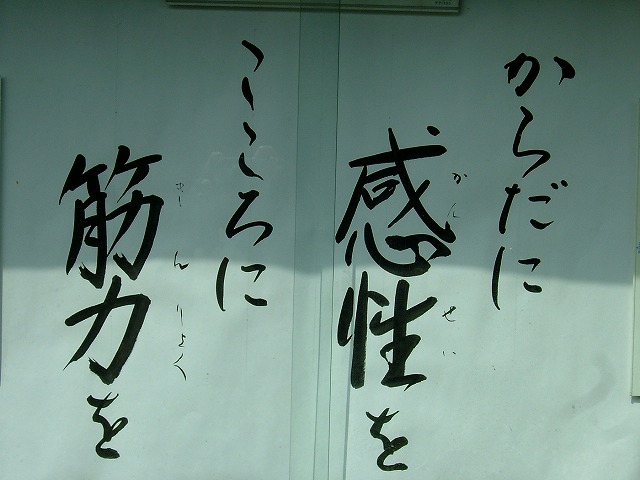 からだに
感性を
かんせい
こころに
筋力を
きんりょく